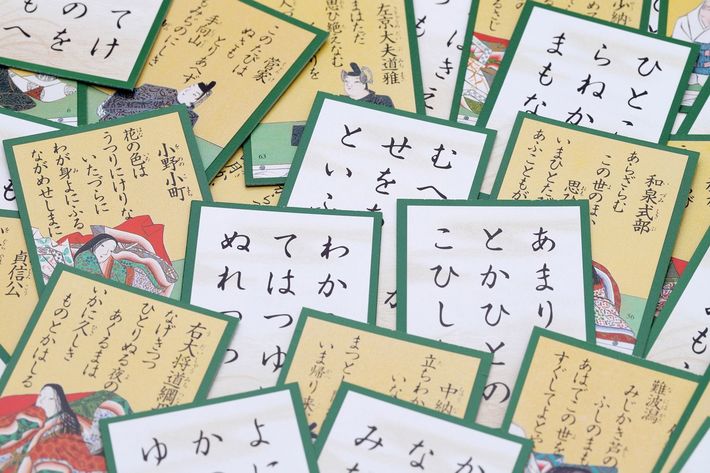 菅家
このたびは
ぬさも
とりあへず
手向山
もみぢのにしき
左京大夫道雅
いまはただ
思ひ絶えなむ
ひとこ
らねか
まもな
むへ
せを
といふ
和泉式部
あらざらむ
この世の
思ひ
いまひとた
あふことも
小野小町
花の色は
うつりにけりな
いたづらに
わが身よにふる
ながめせしまに
わか
てはつゆ
ぬれつつ
あまり
とかひとの
こひし
貞信公
右大将道綱
なげきつつ
ひとりぬる夜の
あくるまは
いかに久しき
ものとかはしる
中納
立ちわか
いな
まつと
いま帰り来
難波潟
みじかき芦の
ふしのまも
あはでこの世を
すぐしてよとや